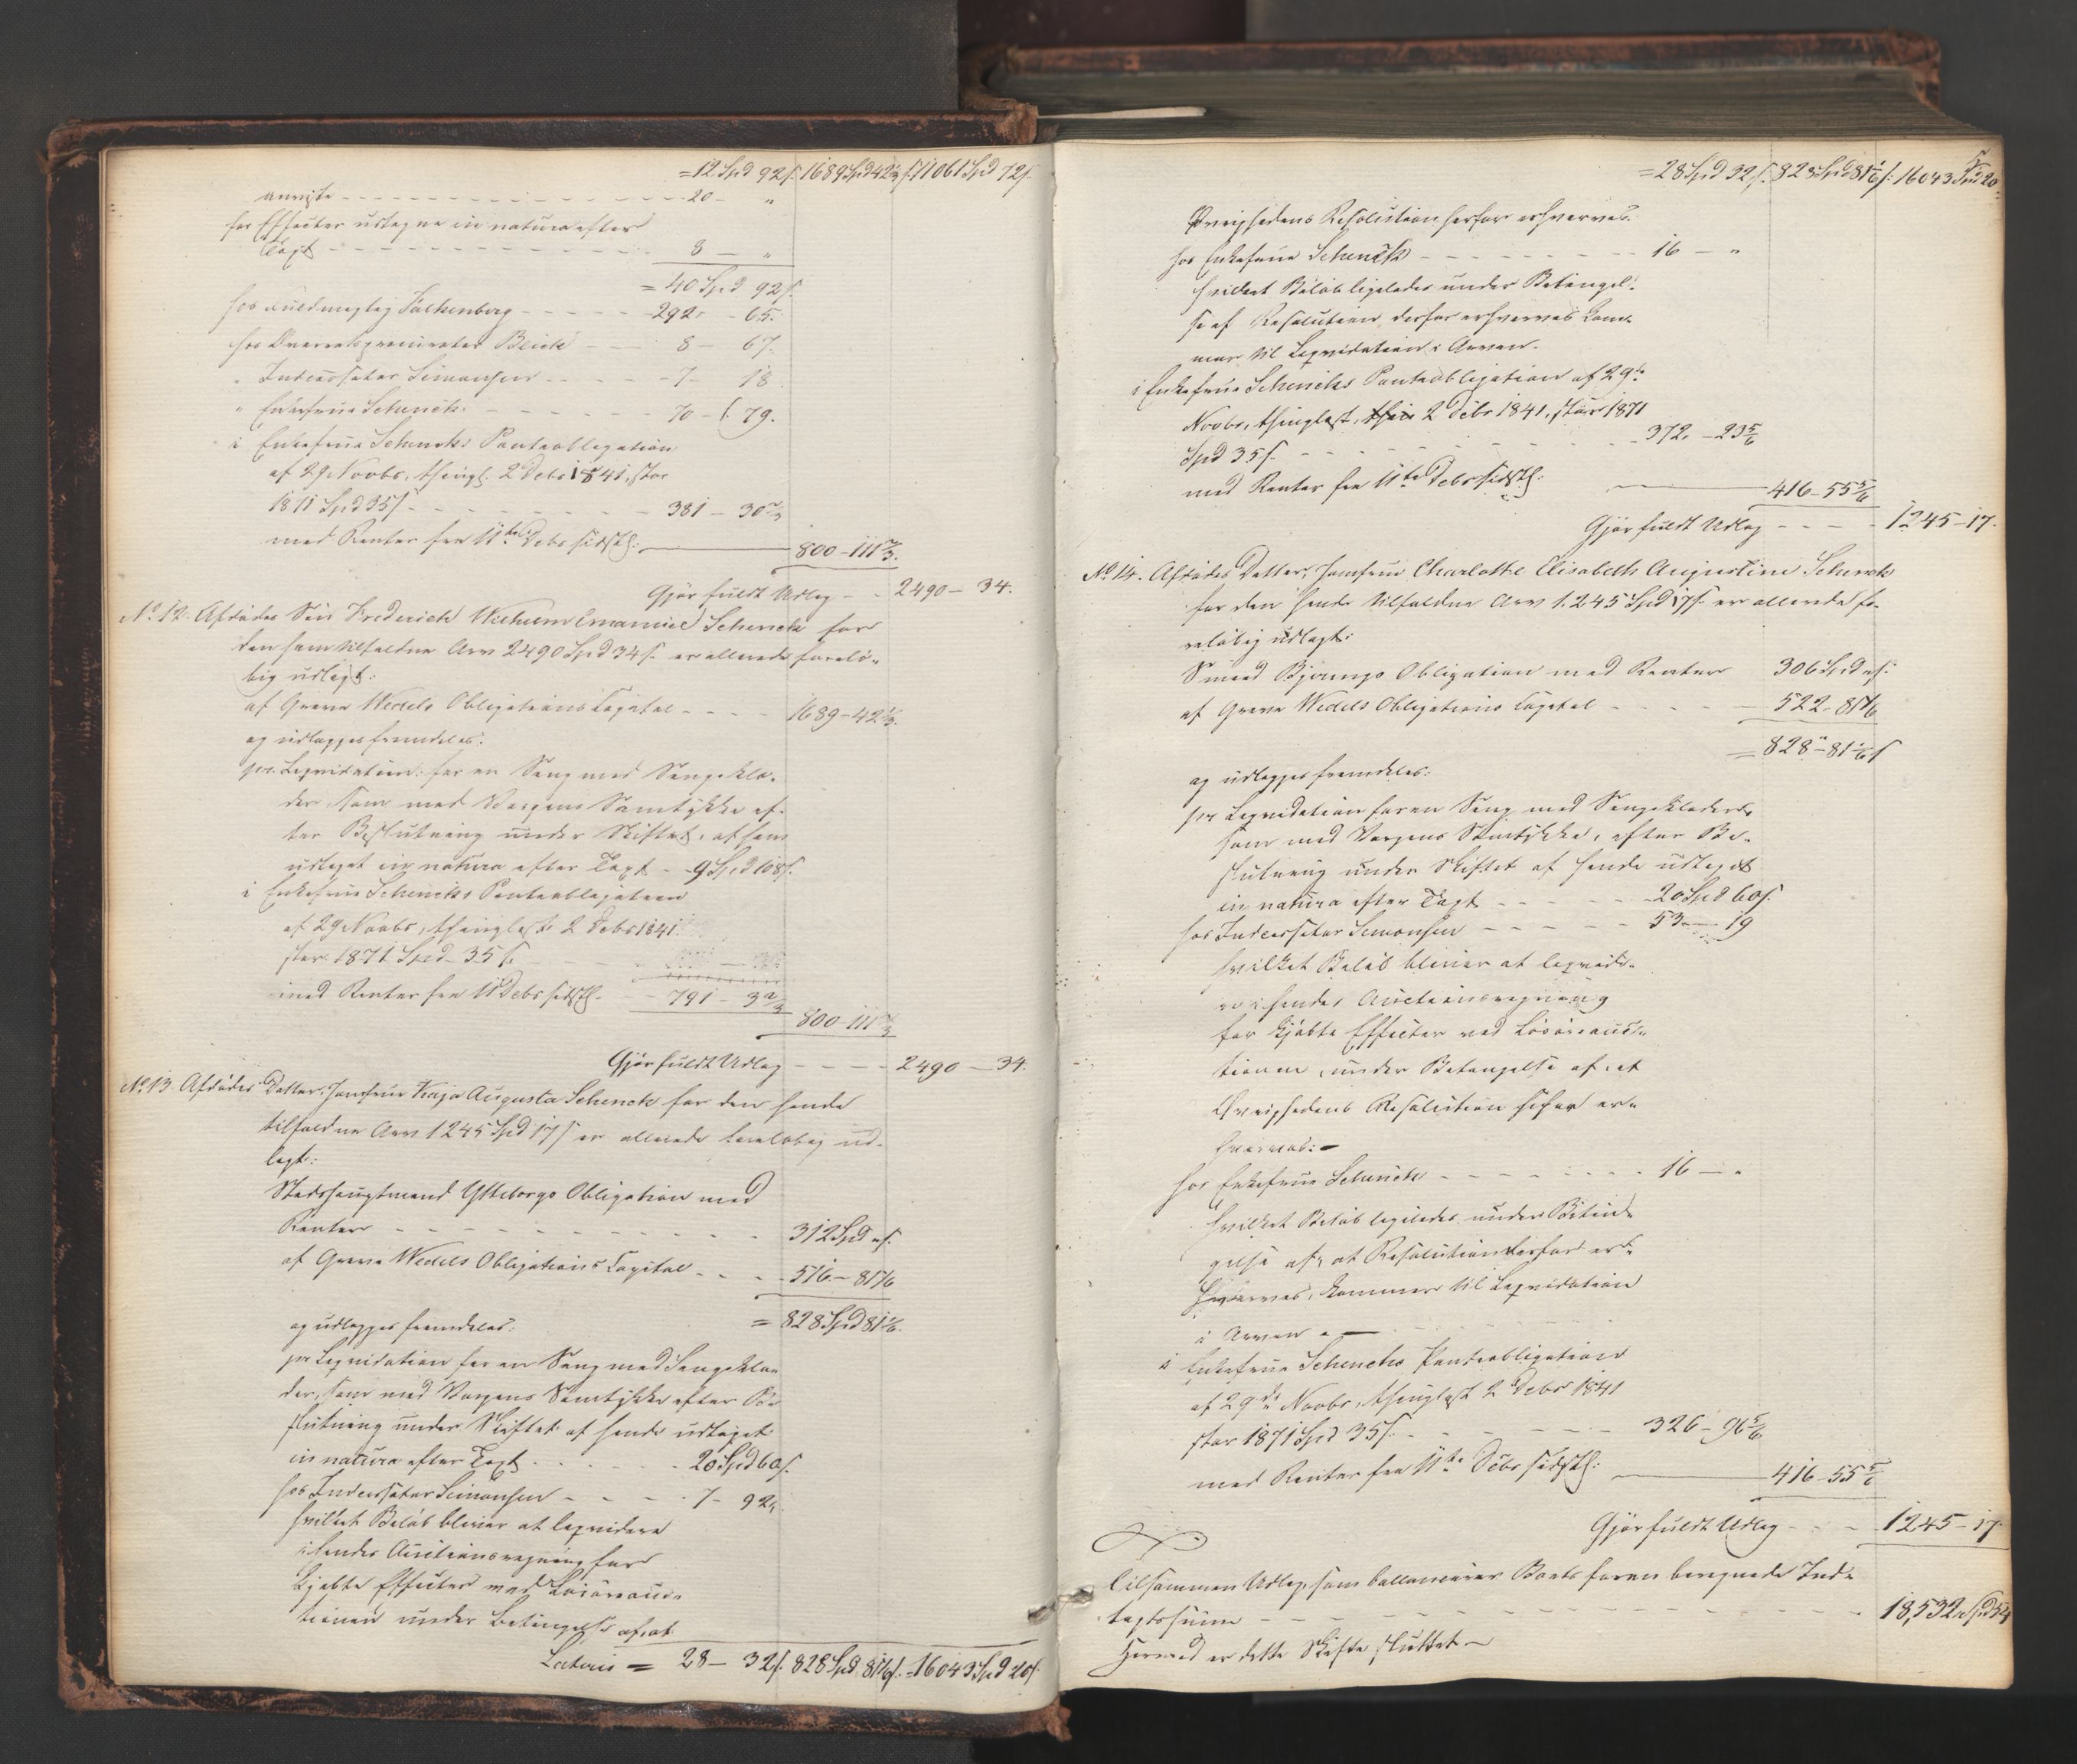 = 12 Spd 92 s. 1689 Spd 42⅓ s. 11061 Spd 72 s.
anviste - - - 20 - "
for Effecter udtagne in natura efter
Taxt - - - 8 - "
= 40 Spd 92 s.
hos Fuldmægtig Falkenberg - - - 292 - 65.
hos Overretsprocurator - - 8 - 67.
" Inderssøster Simonsen - - - 7 - 18
" Enkefrue Schenck - - - 70 - 79.
i Enkefrue Schencks Panteobligation
af 29 Novbr, thingl. 2 Debr 1841, stor
1871 Spd 35 s. - - - 381 - 30⅔
med Renter fra 11te Debr sidstl. 800 - 111⅔.
Gjør fuldt Udlæg - - 2490 - 34.
No 12. Afdødes Søn Frederich Wilhelm Emanuel Schenck for
den ham tilfaldne Arv 2490 Spd 34 s. er allerede forelø-
big udlagt:
af Greve Wedels Obligations Capital - - - 1689 - 42⅓.
og udlægges fremdeles:
pr. Liqvidation for en Seng med Sengeklæ-
der, som med Værgens Samtykke ef-
ter Beslutning under Skiftet, af ham
udtaget in natura efter Taxt - 9 Spd 108 s.
i Enkefrue Schencks Panteobligation
af 29 Novbr, thinglæst 2 Debr 1841
stor 1871 Spd 35 s.
med Renter fra 11 Debr sidstl. - - 791 - 3⅔
800 - 111⅔
Gjør fuldt Udlæg - - - 2490 - 34.
No 13. Afdødes Datter, Jomfrue Kaja Augusta Schenck for den hende
tilfaldne Arv 1245 Spd 17 s. er allerede foreløbig ud-
lagt:
Stadshauptmand Ytteborgs Obligation med
Renter - - - 312 Spd " s.
af Greve Wedels Obligations Capital - - - 516 - 81⅙
= 828 Spd 81⅙.
og udlægges fremdeles:
pr Liqvidation for en Seng med Sengeklæ-
der, som med Værgens Samtykke efter Be-
slutning under Skiftet af hende udtaget
in natura efter Taxt - - - 20 Spd 60 s.
hos Inderssøster Simonsen - - - 7 - 92.
hvilket Beløb bliver at liqvidere
i hendes Auctionsregning for
kjøbte Effecter ved Løsøreauc-
tionen under Betingelse af, at
Lateris = 28 - 32 s. 828 Spd 81⅙ s. = 16043 Spd 20 s.
5
= 28 Spd 32 s. 828 Spd 81⅙ s. 16043 Spd 20
Øvrighedens Resolution herfor erhverves.
hos Enkefrue Schenck - - - 16 - "
hvilket Beløb ligeledes under Betingel-
se af Resolution derfor erhverves kom-
mer til Liqvidation i Arven.
i Enkefrue Schencks Panteobligation af 29de
Novbr, thinglæst 2 Debr 1841, stor 1871
Spd 35 s. - - - 372 - 23⅚
med Renter fra 11te Debr sidstl: 416 - 55⅚
Gjør fuldt Udlæg - - - 1245 - 17.
No 14. Afdødes Datter, Jomfrue Charlotte Elisabeth Augustine Schenck
for den hende tilfaldne Arv 1245 Spd 17 s. er allerede fo-
reløbig udlagt:
Obligation med Renter 306 Spd " s.
af Greve Wedels Obligations Capital - - - 522 - 81⅙
= 828 " - 81⅙ s
og udlægges fremdeles:
pr Liqvidation for en Seng med Sengeklæder,
som med Værgens Samtykke, efter Be-
slutning under Skiftet af hende udtaget
in natura efter Taxt - - - 20 Spd 60 s.
hos Inderssøster Simonsen - - - 53 - 19
hvilket Beløb bliver at liqvide-
re i hendes Auctionsregning
for kjøbte Effecter ved Løsøreauc-
tionen, under Betingelse af, at
Øvrighedens Resolution herfor er-
hverves: -
hos Enkefrue Schenck - - - 16 - "
hvilket Beløb ligeledes under Betin-
gelse af, at Resolution herfor er-
hverves, kommer til Liqvidation
i Arven. -
i Enkefrue Schencks Panteobligation
af 29de Novbr, thinglæst 2 Debr 1841
stor 1871 Spd 35 s. - - - 326 - 96⅚
med Renter fra 11te Debr sidstl: 416 - 55⅚
Gjør fuldt Udlæg - - - 1245 - 17.
Tilsammen Udlæg, som ballancerer Boets foran beregnede Ind-
tægtssum - - - 18,532 Spd 54
Hermed er dette Skifte sluttet -